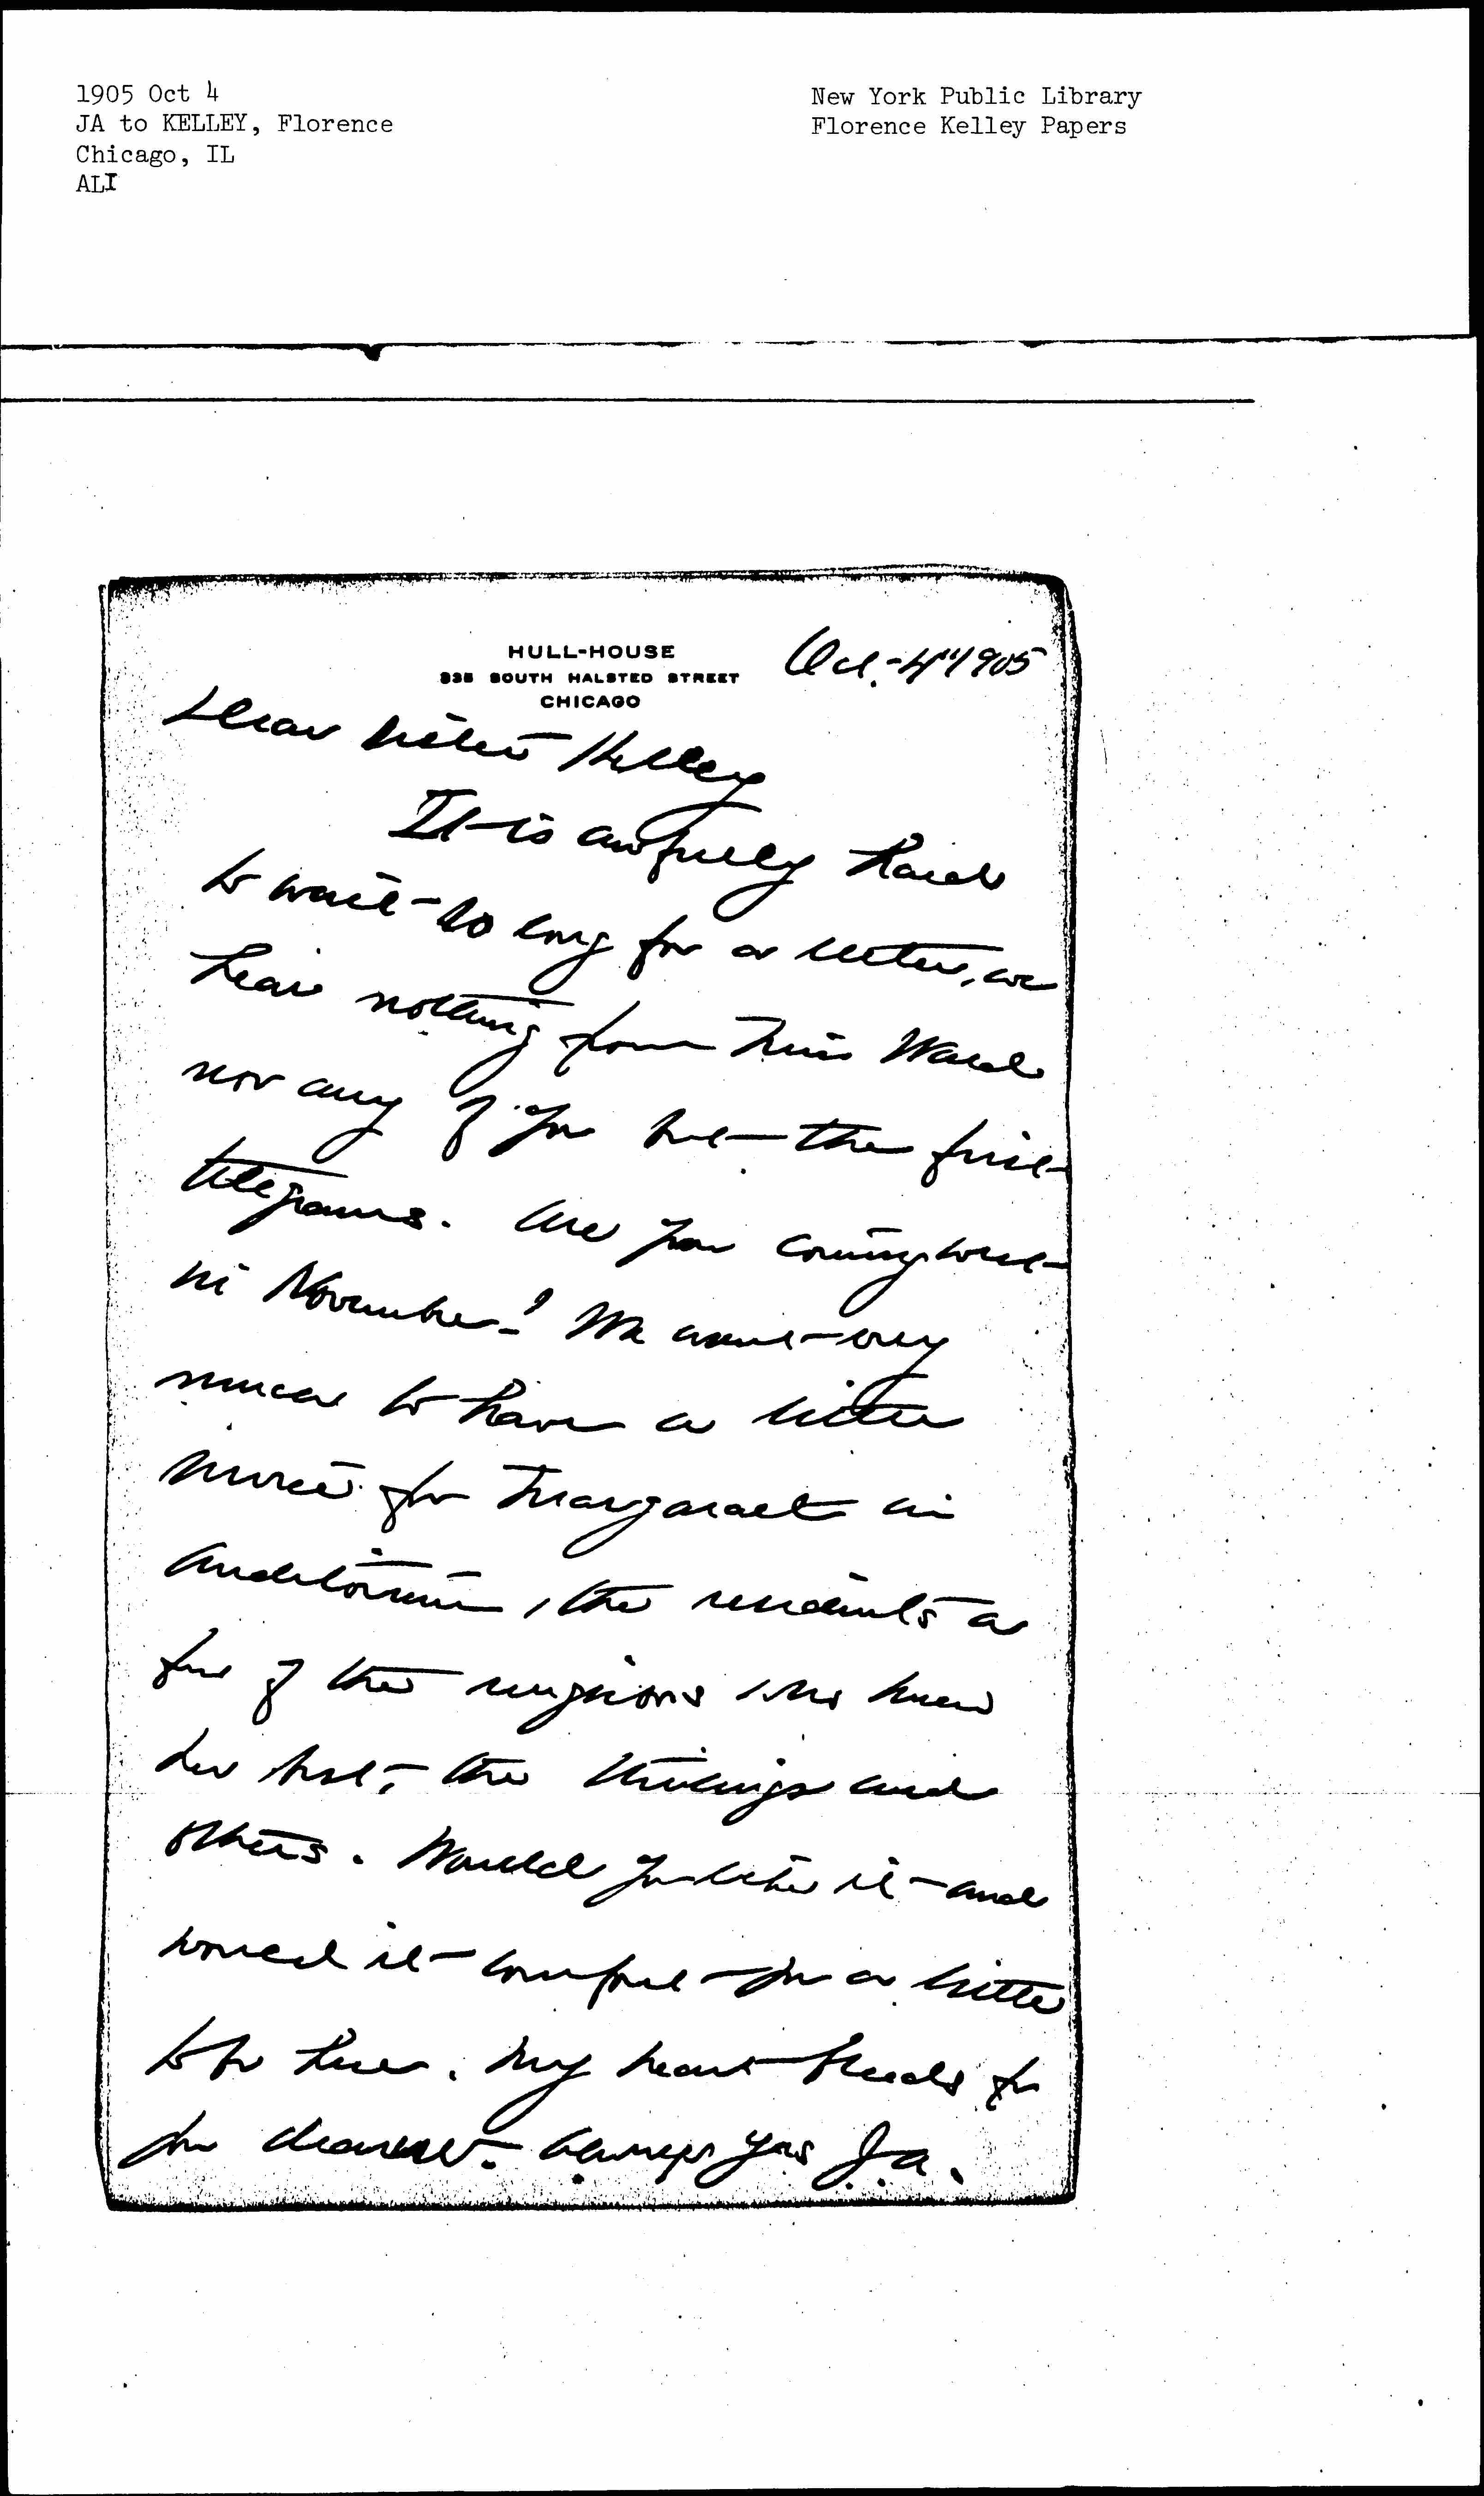 1905 Oct 4
JA to KELLEY, Florence
Chicago, IL
ALI
New York Public Library
Florence Kelley Papers
HULL-HOUSE
335 SOUTH HALSTED STREET
CHICAGO
Oct. 4" 1905
Dear Sister Kelley
It is awfully hard
to wait so long for a letter, we
hear nothing from Miss Wald
nor any of you but the first
telegrams. Are you coming west
in November? We want very
much to have a little
service for Margaret in
Auditorium, the residents a
few of the neighbors who knew
her best, the and
others. Would you like it and
would it comfort you a little
to be here. My heart bleeds for
you dearest. Always yrs J.A.